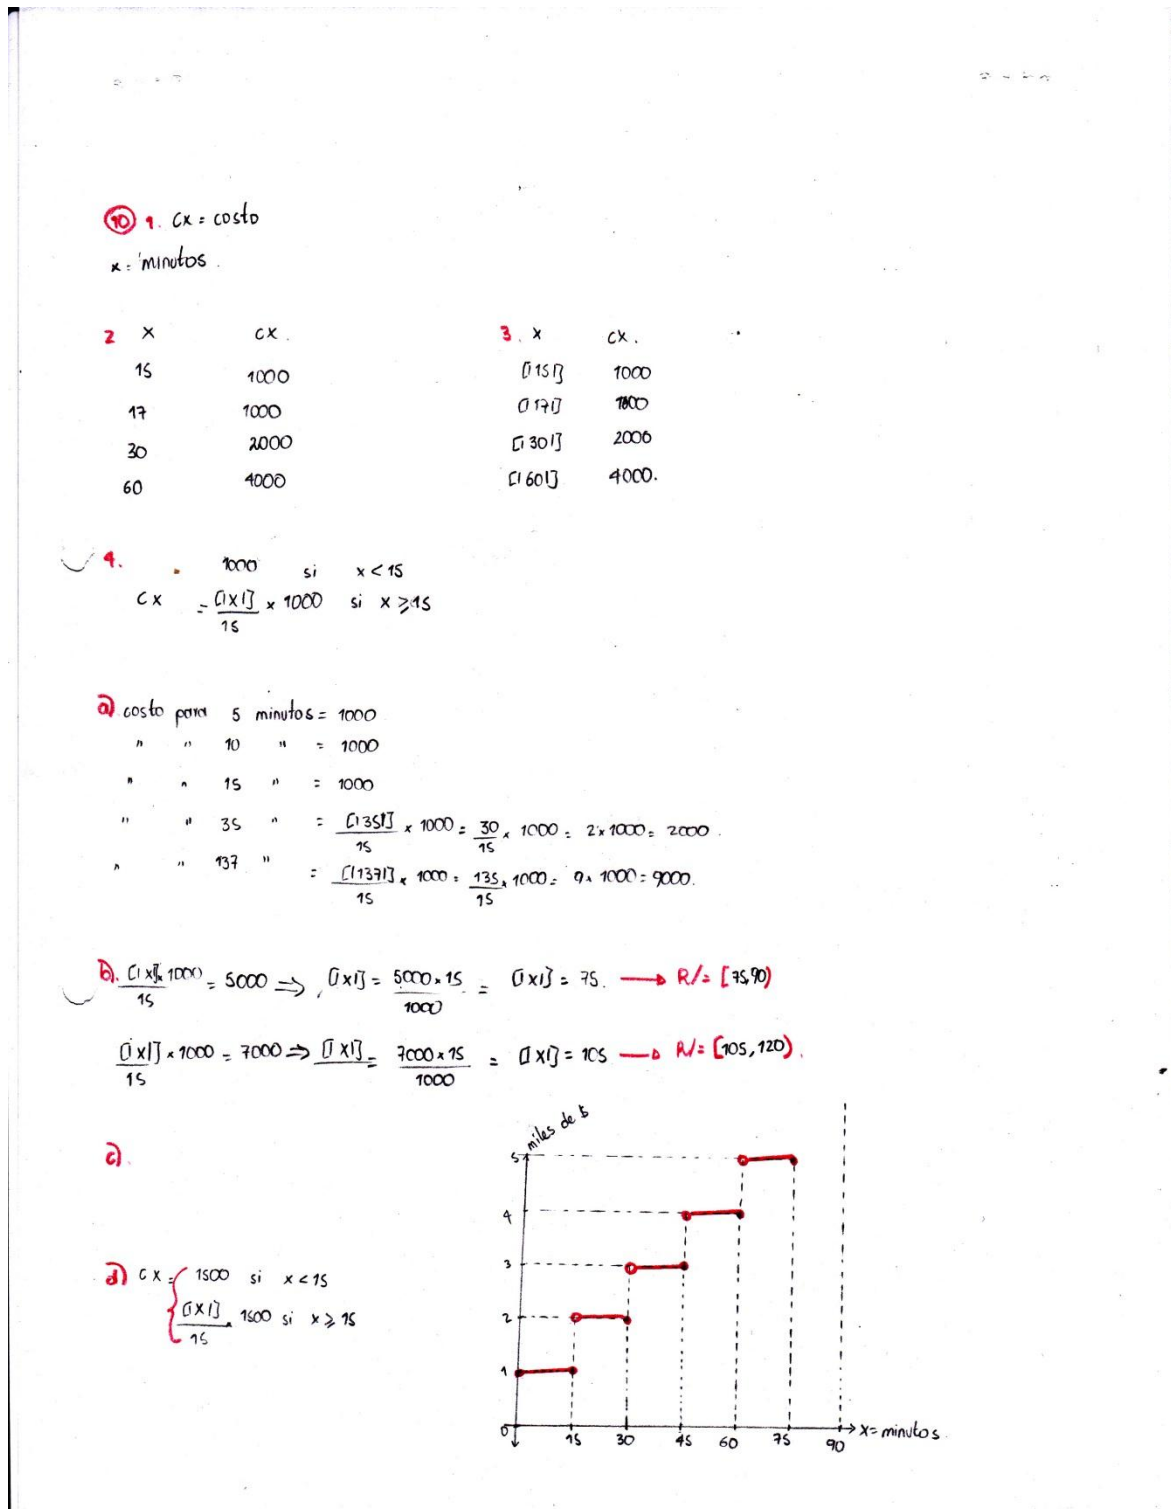 10 1. Cx = costo
x = minutos.
2 X CX.
15 1000
17 1000
30 2000
60 4000
3. x CX.
[|15|] 1000
[|17|] 1000
[|30|] 2000
[|60|] 4000.
4. 1000 si x < 15
CX = [|x|]/15 × 1000 si x ≥ 15
a) costo para 5 minutos = 1000
" " 10 " = 1000
" " 15 " = 1000
" " 35 " = [|35|]/15 × 1000 = 30/15 × 1000 = 2 × 1000 = 2000.
" " 137 " = [|137|]/15 × 1000 = 135/15 × 1000 = 9 × 1000 = 9000.
b). [|x|]/15 × 1000 = 5000 ⇒ [|x|] = 5000 × 15/1000 = [|x|] = 75. → R/= [75,90)
[|x|]/15 × 1000 = 7000 ⇒ [|x|] = 7000 × 15/1000 = [|x|] = 105 → R/= [105,120).
c).
miles de $
5
4
3
2
1
0 15 30 45 60 75 90 x = minutos.
d) CX = { 1500 si x < 15
[|x|]/15 × 1500 si x ≥ 15